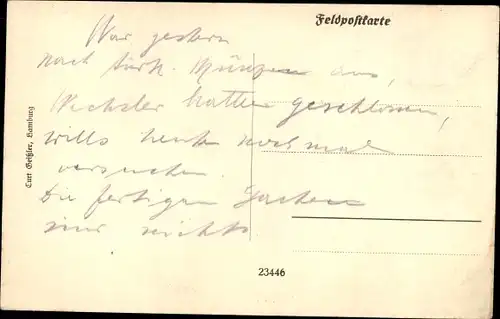 Feldpostkarte
War gestern
nach türk. Münzen aus,
Wechsler hatten geschlossen,
wills heute noch mal
versuchen.
Die fertigen Sachen
nur nichts
Curt Geßler, Bamburg
23446